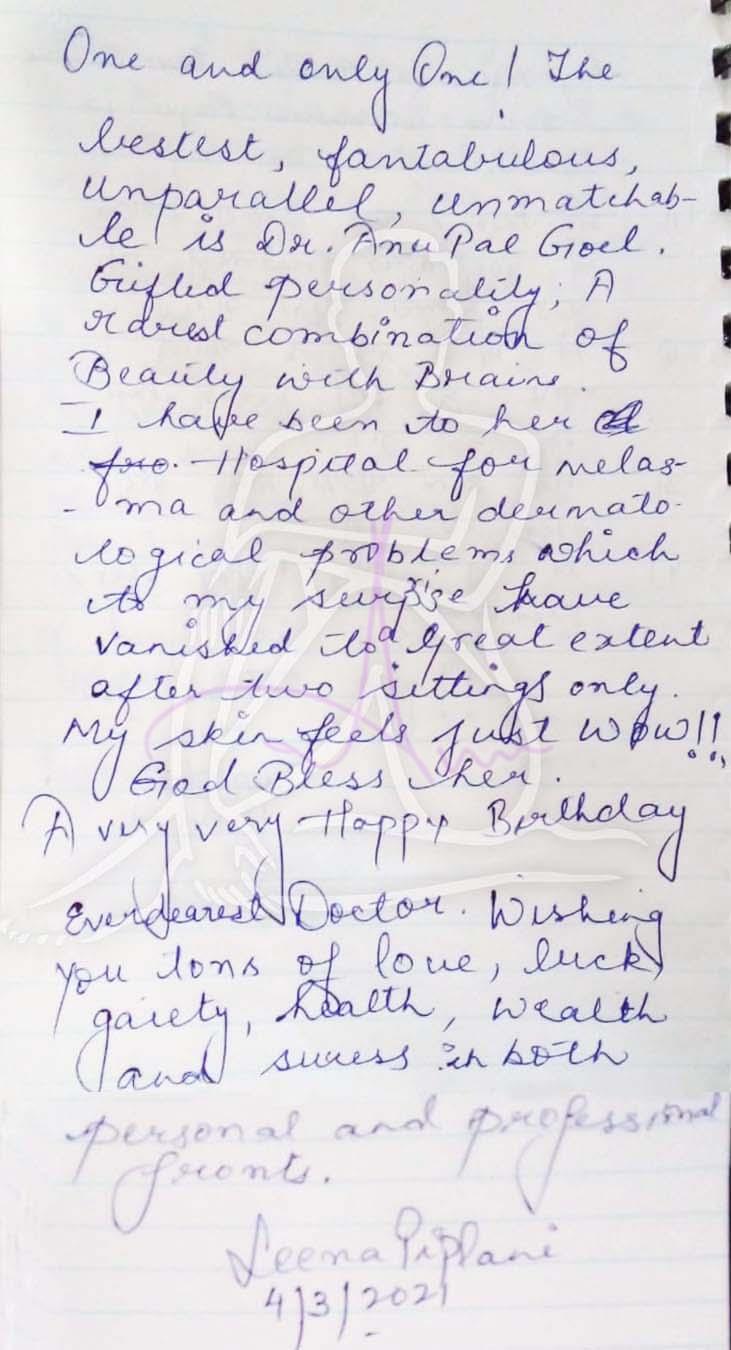 One and only One! The
bestest, fantabulous,
unparallel, unmatchab-
le is Dr. Anu Pal Goel.
Gifted personality; A
rarest combination of
Beauty with Brains.
I have been to her
fro. Hospital for melas-
- ma and other dermato-
logical problems which
to my surprise have
vanished to a great extent
after two sittings only.
My skin feels just wow!!
God Bless her.
A very very Happy Birthday
Everdearest Doctor. Wishing
you tons of love, luck,
gaiety, health, wealth
and success in both
personal and professional
fronts.
Leena Piplani
4/3/2021